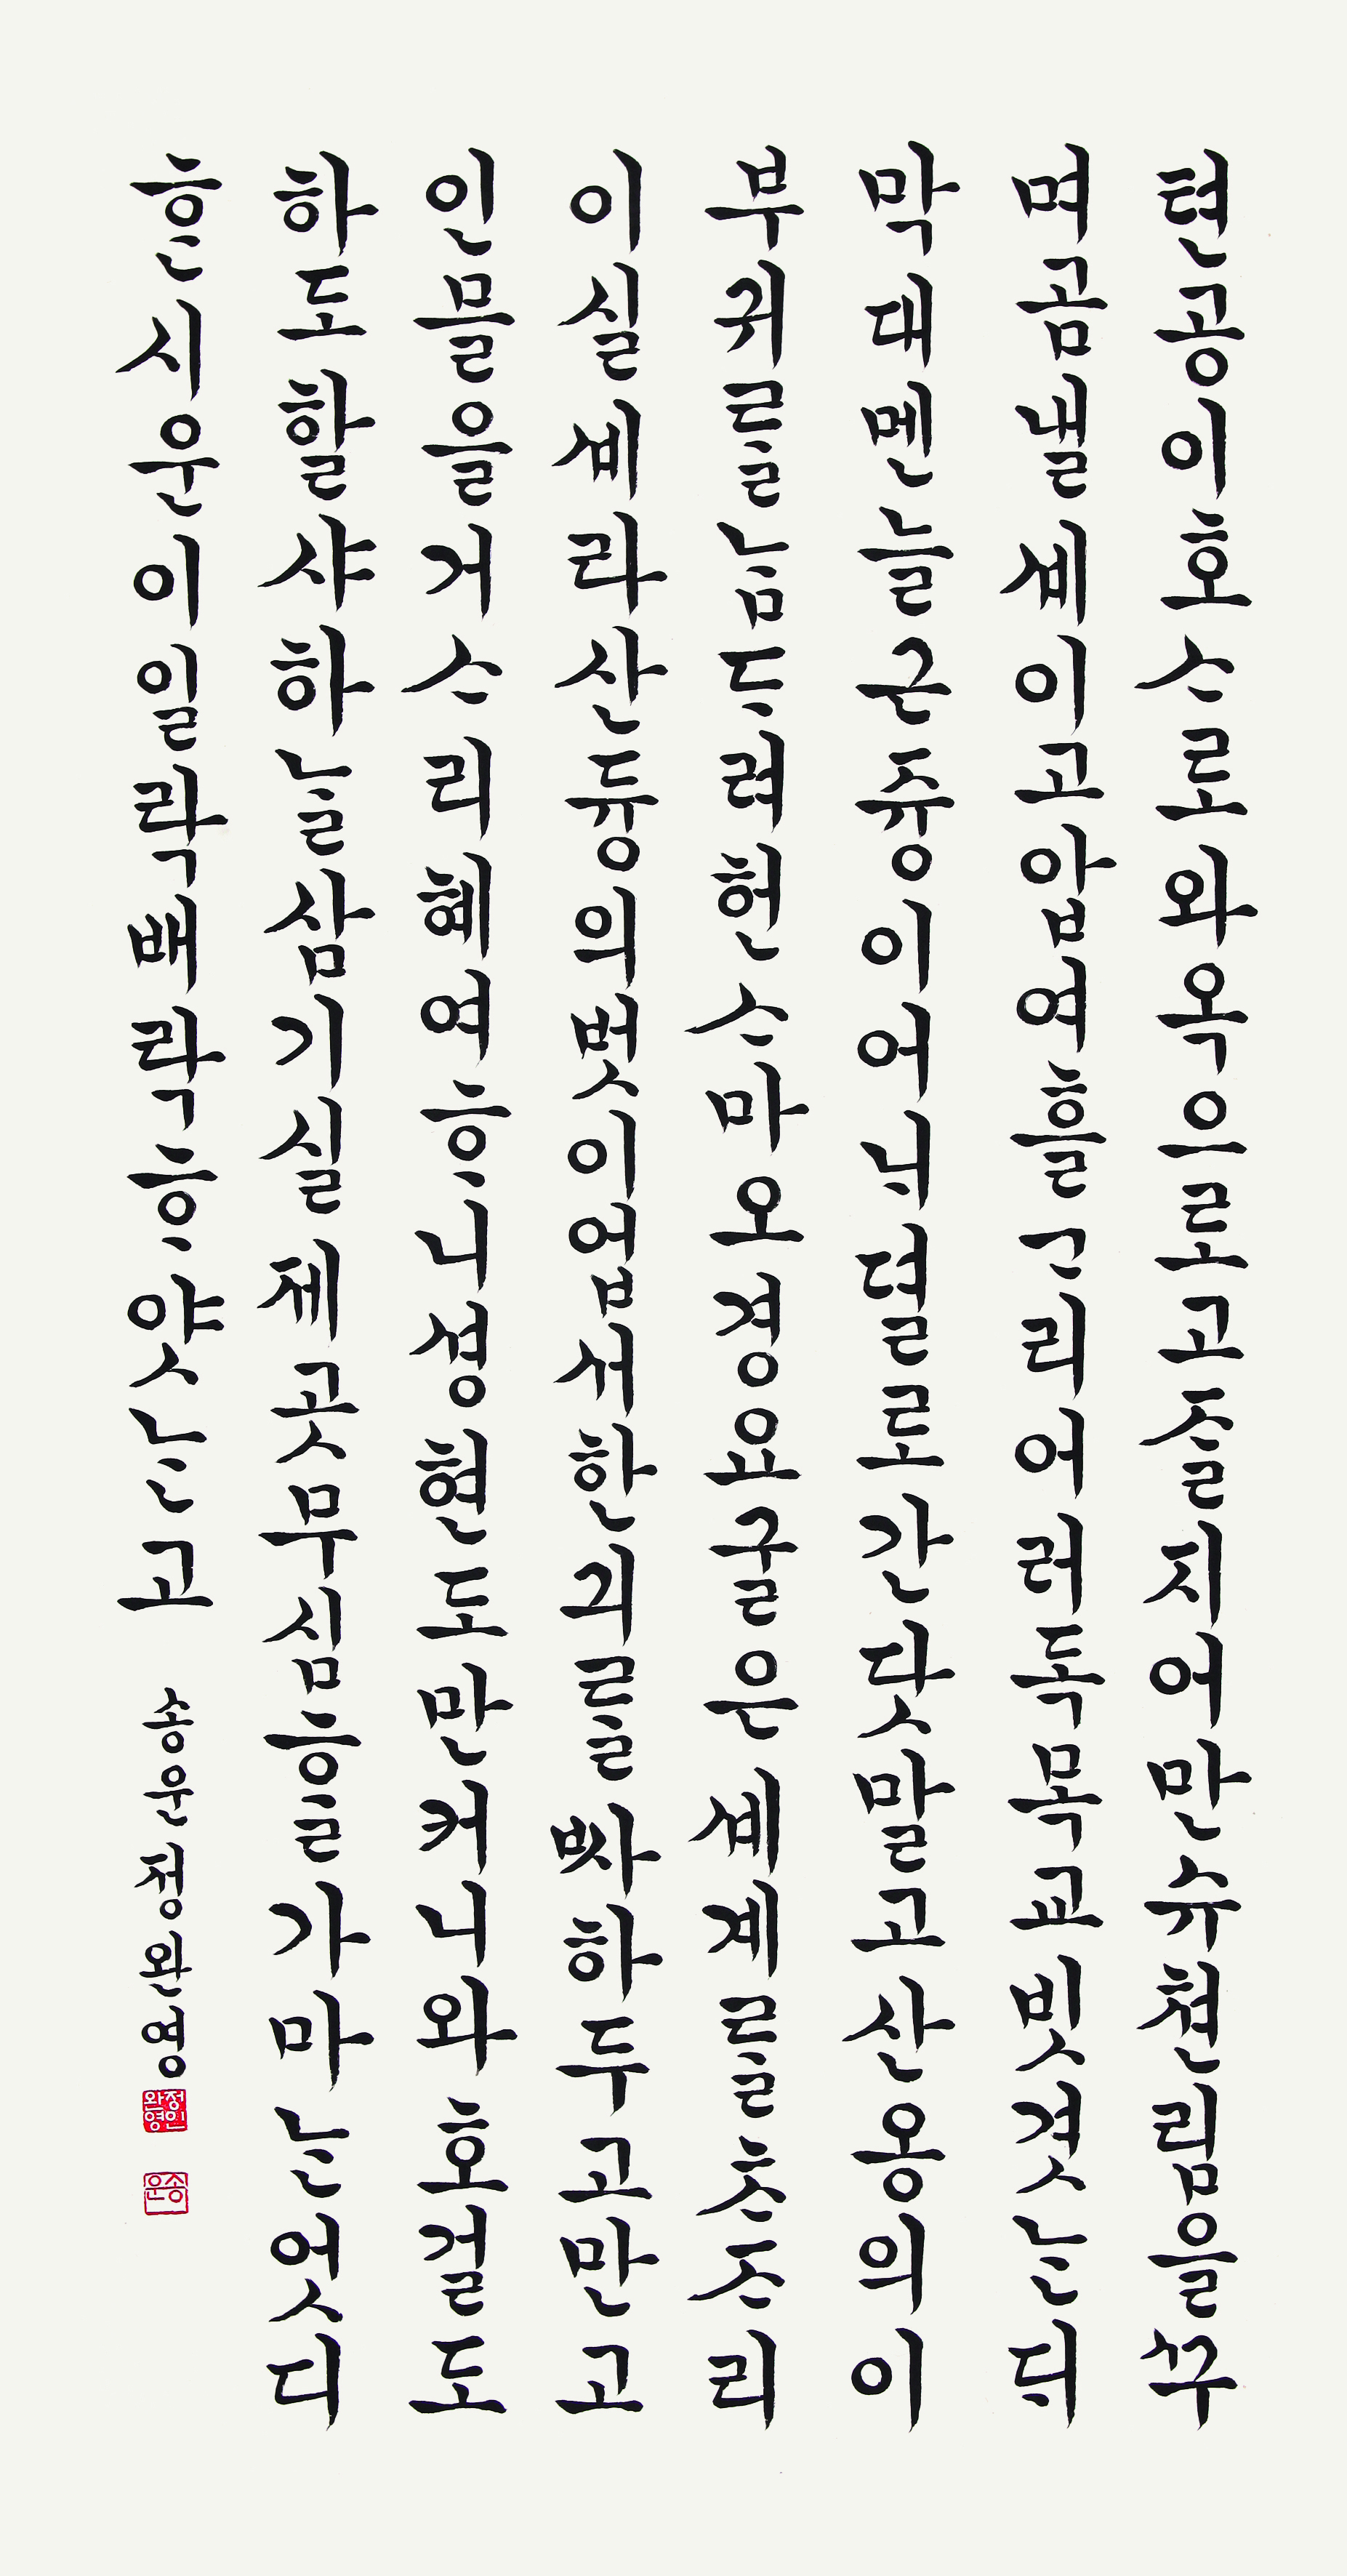 텬공이호ᄉᆞ로와옥으로고ᄌᆞᆯ지어만슈쳔림을ᄭᅮ
며곰낼셰이고압여흘ᄀᆞ리어러독목교빗겻ᄂᆞᆫᄃᆡ
막대멘늘근즁이어ᄂᆡ뎔로간닷말고산옹의이
부귀ᄅᆞᆯᄂᆞᆷᄃᆞ려헌ᄉᆞ마오경요굴은셰계ᄅᆞᆯᄎᆞᄌᆞ리
이실셰라산듕의벗이업서한긔ᄅᆞᆯᄡᅡ하두고만고
인믈을거ᄉᆞ리혜여ᄒᆞ니셩현도만커니와호걸도
하도할샤하ᄂᆞᆯ삼기실제곳무심ᄒᆞᆯ가마ᄂᆞᆫ엇디
ᄒᆞᆫ시운이일락배락ᄒᆞ얏ᄂᆞᆫ고
송운정완영
정완영인
송운